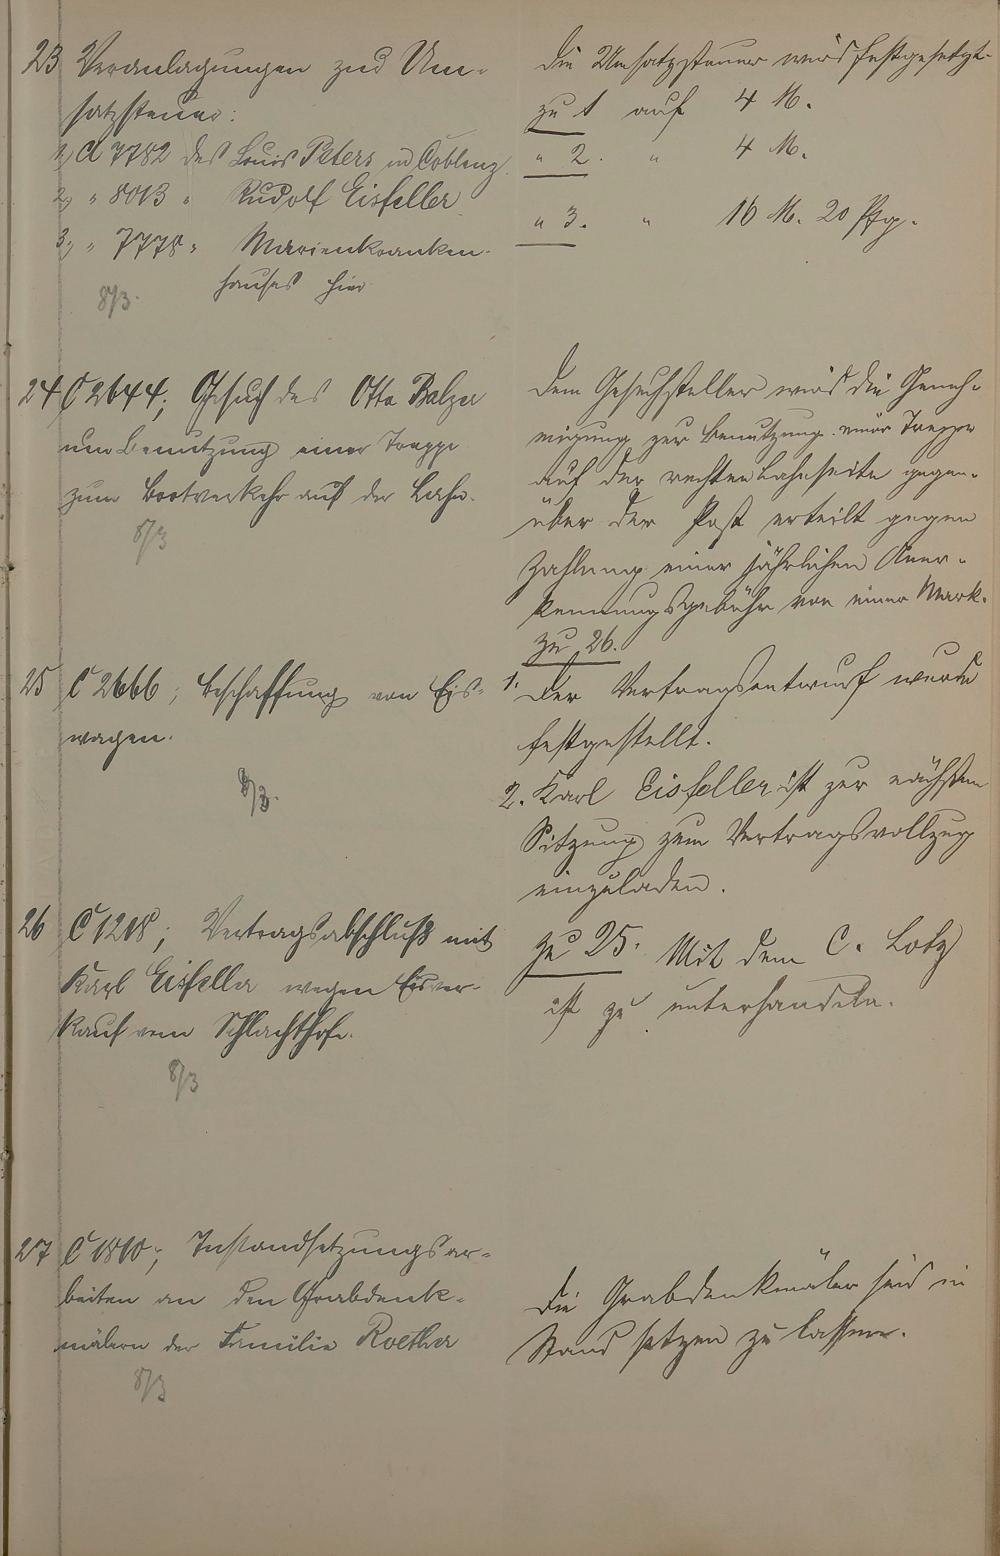 23 Veranlagungen zur Um-
satzsteuer:
1, A 7782 des Louis Peters in Coblenz.
2, " 8013 " Rudolf Eisfeller
3, " 7778 " Marienkranken-
hauses hier
8/3.
Die Umsatzsteuer wird festgesetzt
zu 1 auf 4 M.
" 2. " 4 M.
" 3. " 16 M. 20 Pfg.
24 C 2644; Gesuch des Otto Balzer
um Benutzung einer Treppe
zum Bootverkehr auf der Lahn.
8/3
Dem Gesuchsteller wird die Geneh-
migung zur Benutzung einer Treppe
auf der rechten Lahnseite gegen-
über der Post erteilt gegen
Zahlung einer jährlichen Aner-
kennungsgebühr von einer Mark.
25 C 2666; Beschaffung von Eis-
wagen.
8/3.
zu 26.
1. Der Vertragsentwurf wurde
festgestellt.
2. Karl Eisfeller ist zur nächsten
Sitzung zum Vertragsvollzug
einzuladen.
26 C 1218; Vertragsabschluß mit
Karl Eisfeller wegen Eisver-
kauf vom Schlachthofe.
8/3
zu 25. Mit dem C. Lotz
ist zu unterhandeln.
27 C 1810; Instandsetzungsar-
beiten an den Grabdenk-
mälern der Familie Roether
8/3
Die Grabdenkmäler sind in
Stand setzen zu lassen.